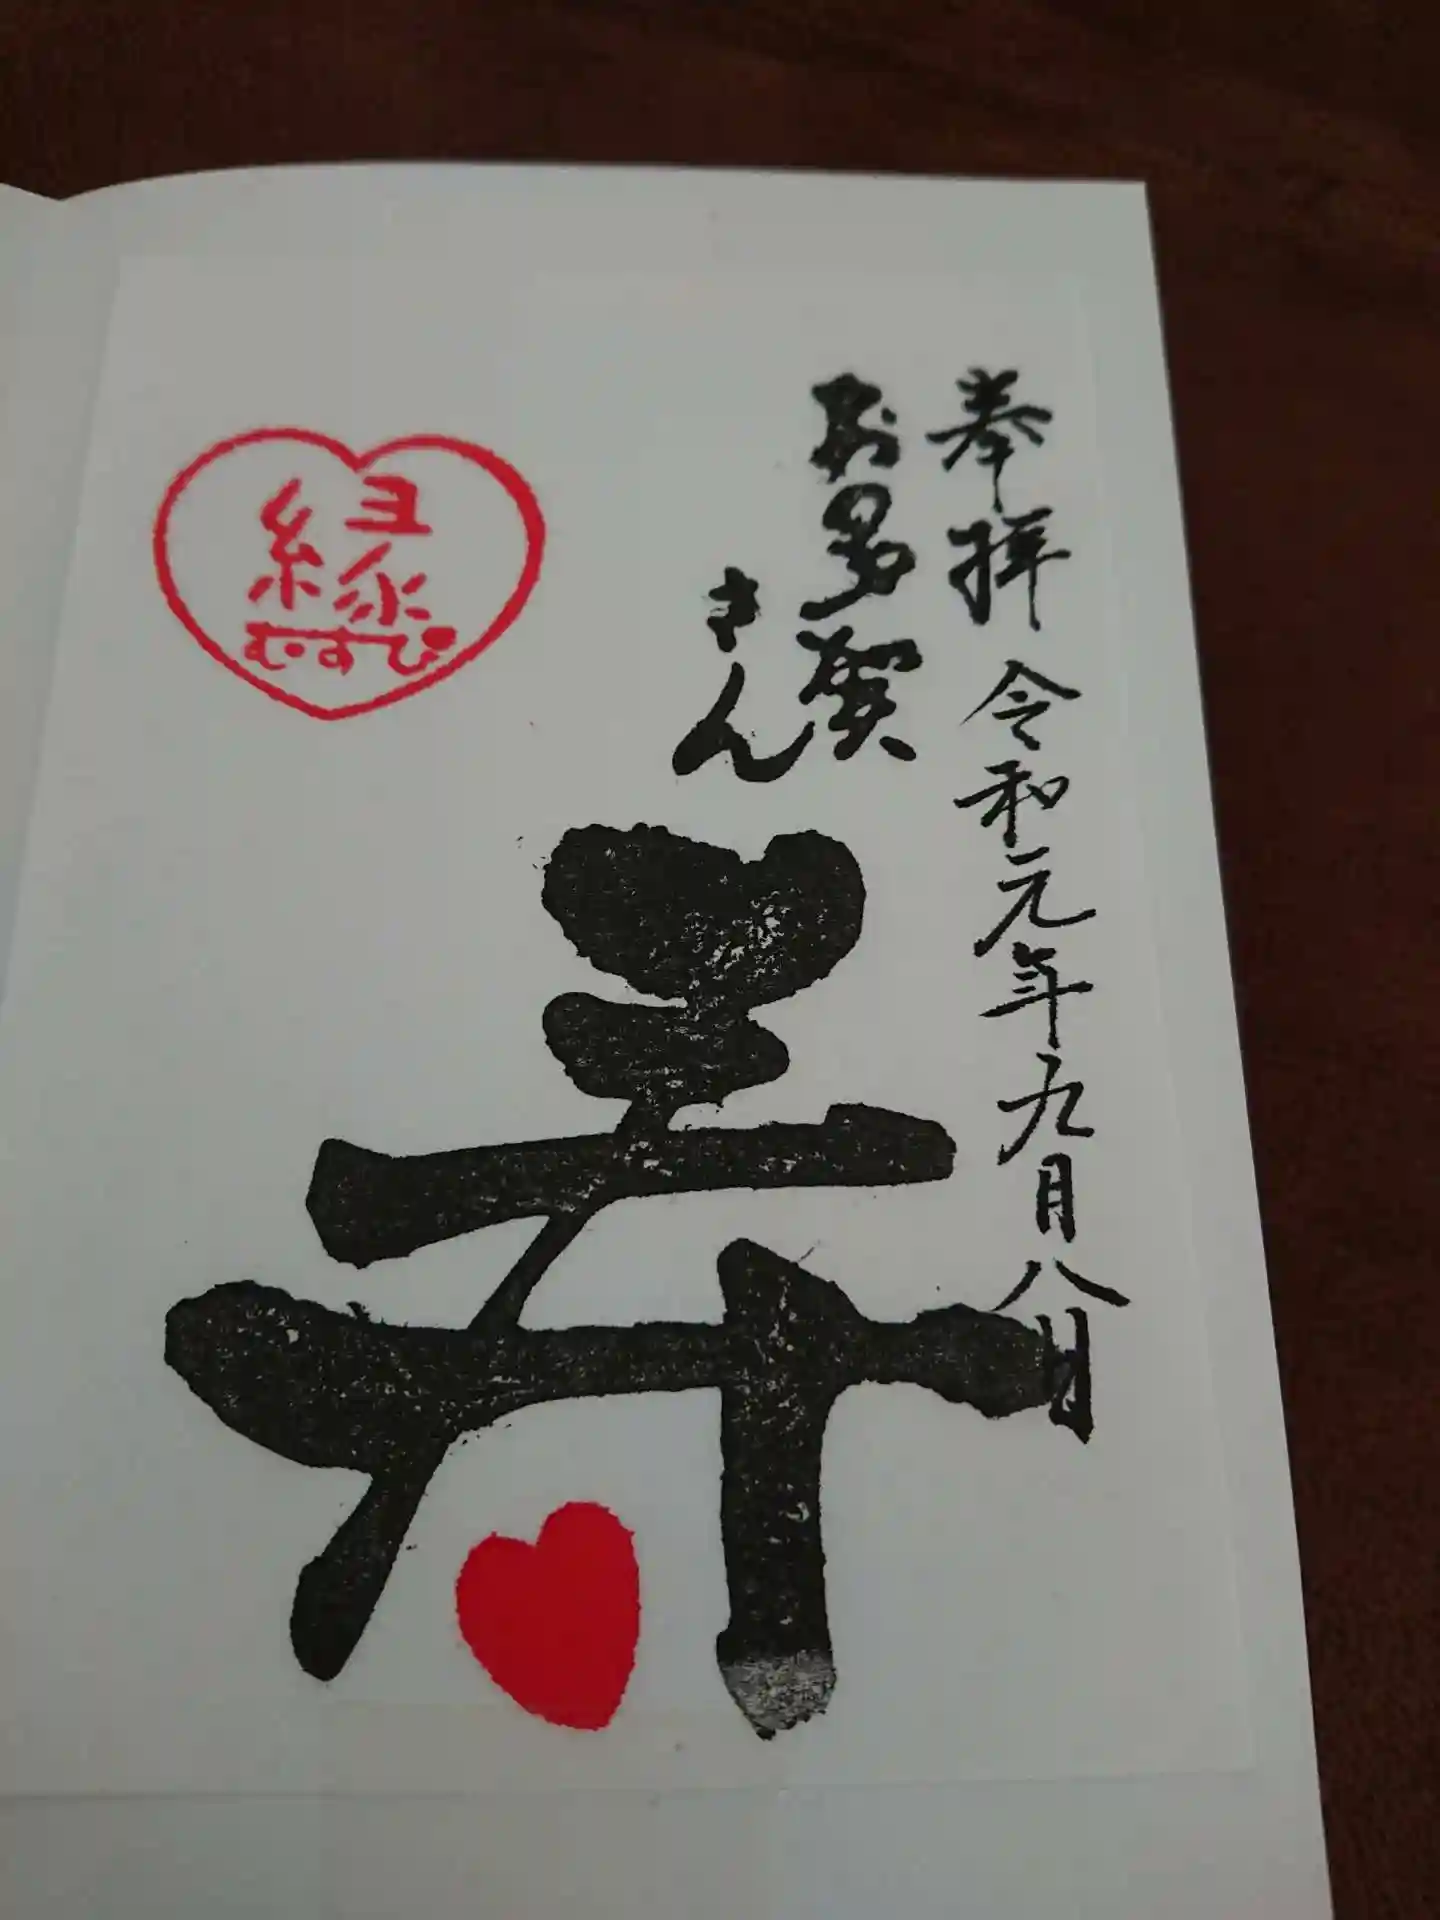 奉拝 令和元年九月八日
お多賀
さん
寿
縁
むすび